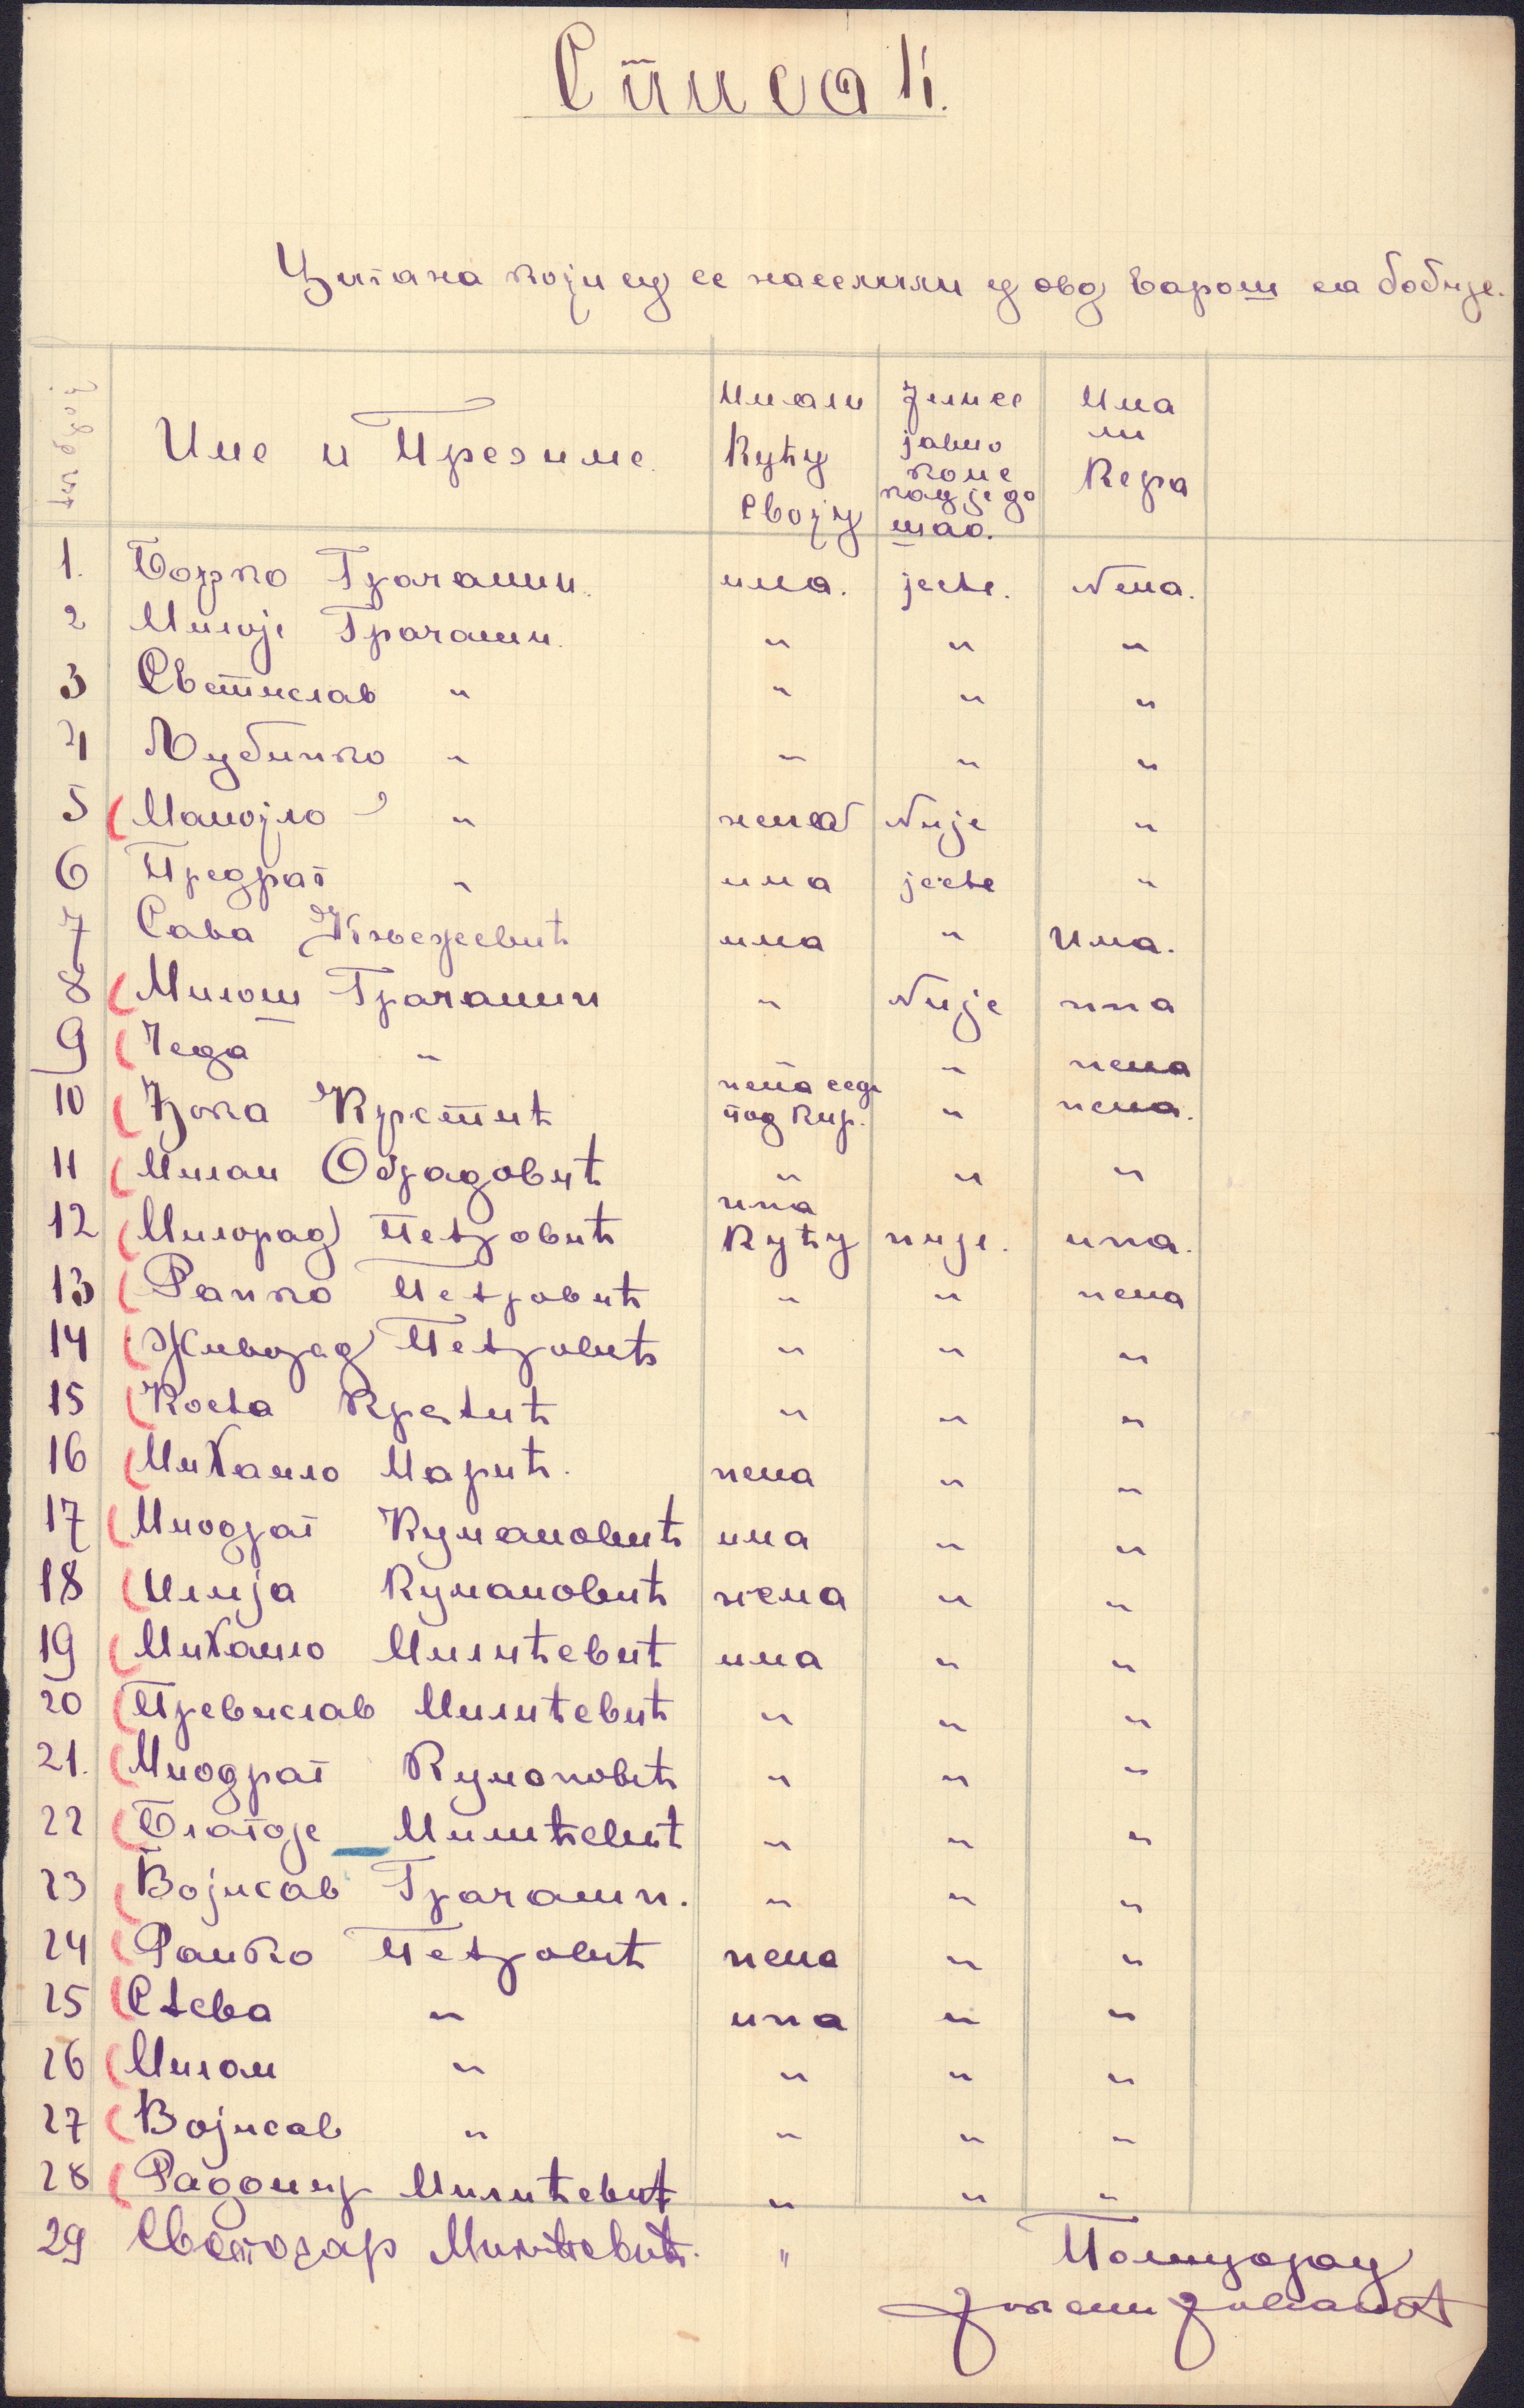 Списак.
Цигана који су се населили у ову варош са бобије.
Тек. број
Име и Презиме.
Има ли кућу своју
Јели се јавио коме кад је дошао.
Има ли Кера
1. Борко Грачанин. има. јесте. Нема.
2 Милоје Грачанин. " " "
3 Светислав " " " "
4 Љубинко " " " "
5 Манојло " нема Није "
6 Предраг " има јесте "
7 Сава Кнежевић има " Има.
8 Милош Грачанин " Није има
9 Чеда " " нема
10 Ђока Крстић нема седи под кир. " нема.
11 Милан Обрадовић " " "
12 Милорад Петровић има кућу није. има.
13 Ранко Петровић " " нема
14 Живорад Петровић " " "
15 Коста Крстић " " "
16 Михаило Марић. нема " "
17 Миодраг Кумановић има " "
18 Илија Кумановић нема " "
19 Михаило Милићевић има " "
20 Првислав Милићевић " " "
21. Миодраг Кумановић " " "
22 Благоје Милићевић " " "
23 Војисав Грачанин. " " "
24 Ранко Петровић нема " "
25 Стева " има " "
26 Милан " " " "
27 Војисав " " " "
28 Радомир Милићевић " " "
29 Светозар Милићевић. "